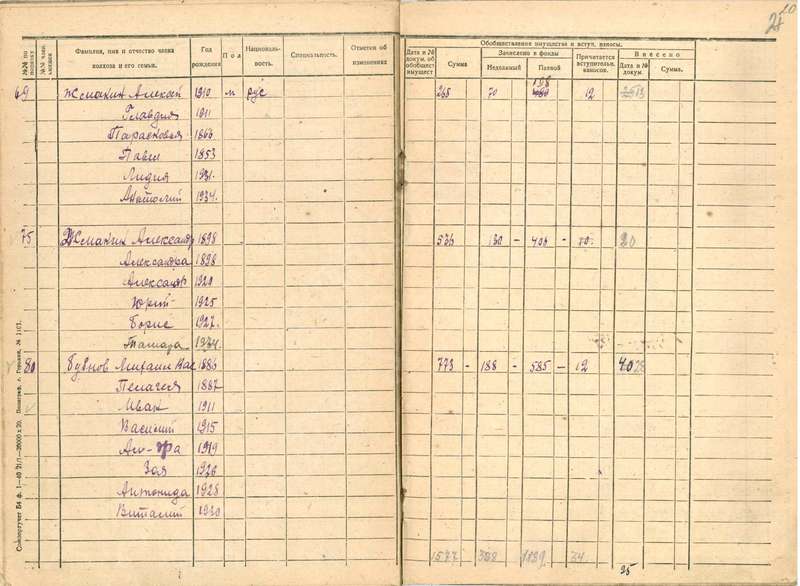 20
№№ по порядку
№№ член. книжки
Фамилия, имя и отчество члена колхоза и его семьи.
Год рождения
Пол
Националь-ность.
Специальность.
Отметки об изменениях
Обобществление имущества и вступ. взносы.
Дата и № докум. об обобщест. имущест
Сумма
Зачислено в фонды
Неделимый
Паевой
Причитается вступительн. взносов.
Внесено
Дата и № докум.
Сумма.
69 Жмакин Алексей 1910 м рус 265 70 198 12
Главдия 1911
Парасковья 1866
Павел 1853
Лидия 1931.
Анатолий 1934.
75 Жмакин Александр 1898 536 130 - 406 - 20
Александра 1898
Александр 1920
Юрий 1925
Борис 1927.
Тамара 1934.
80 Бубнов Михаил Вас 1886 773 - 188 - 585 - 12
Пелагея 1887
Иван 1911
Василий 1915
1919
Зоя 1926
Антонида 1928
Виталий 1930
1577 388 1189 34
25
Союзоргучет Б4 ф. 1—40 21/1—25000×20. Полиграф. л. Горького, № 1107.